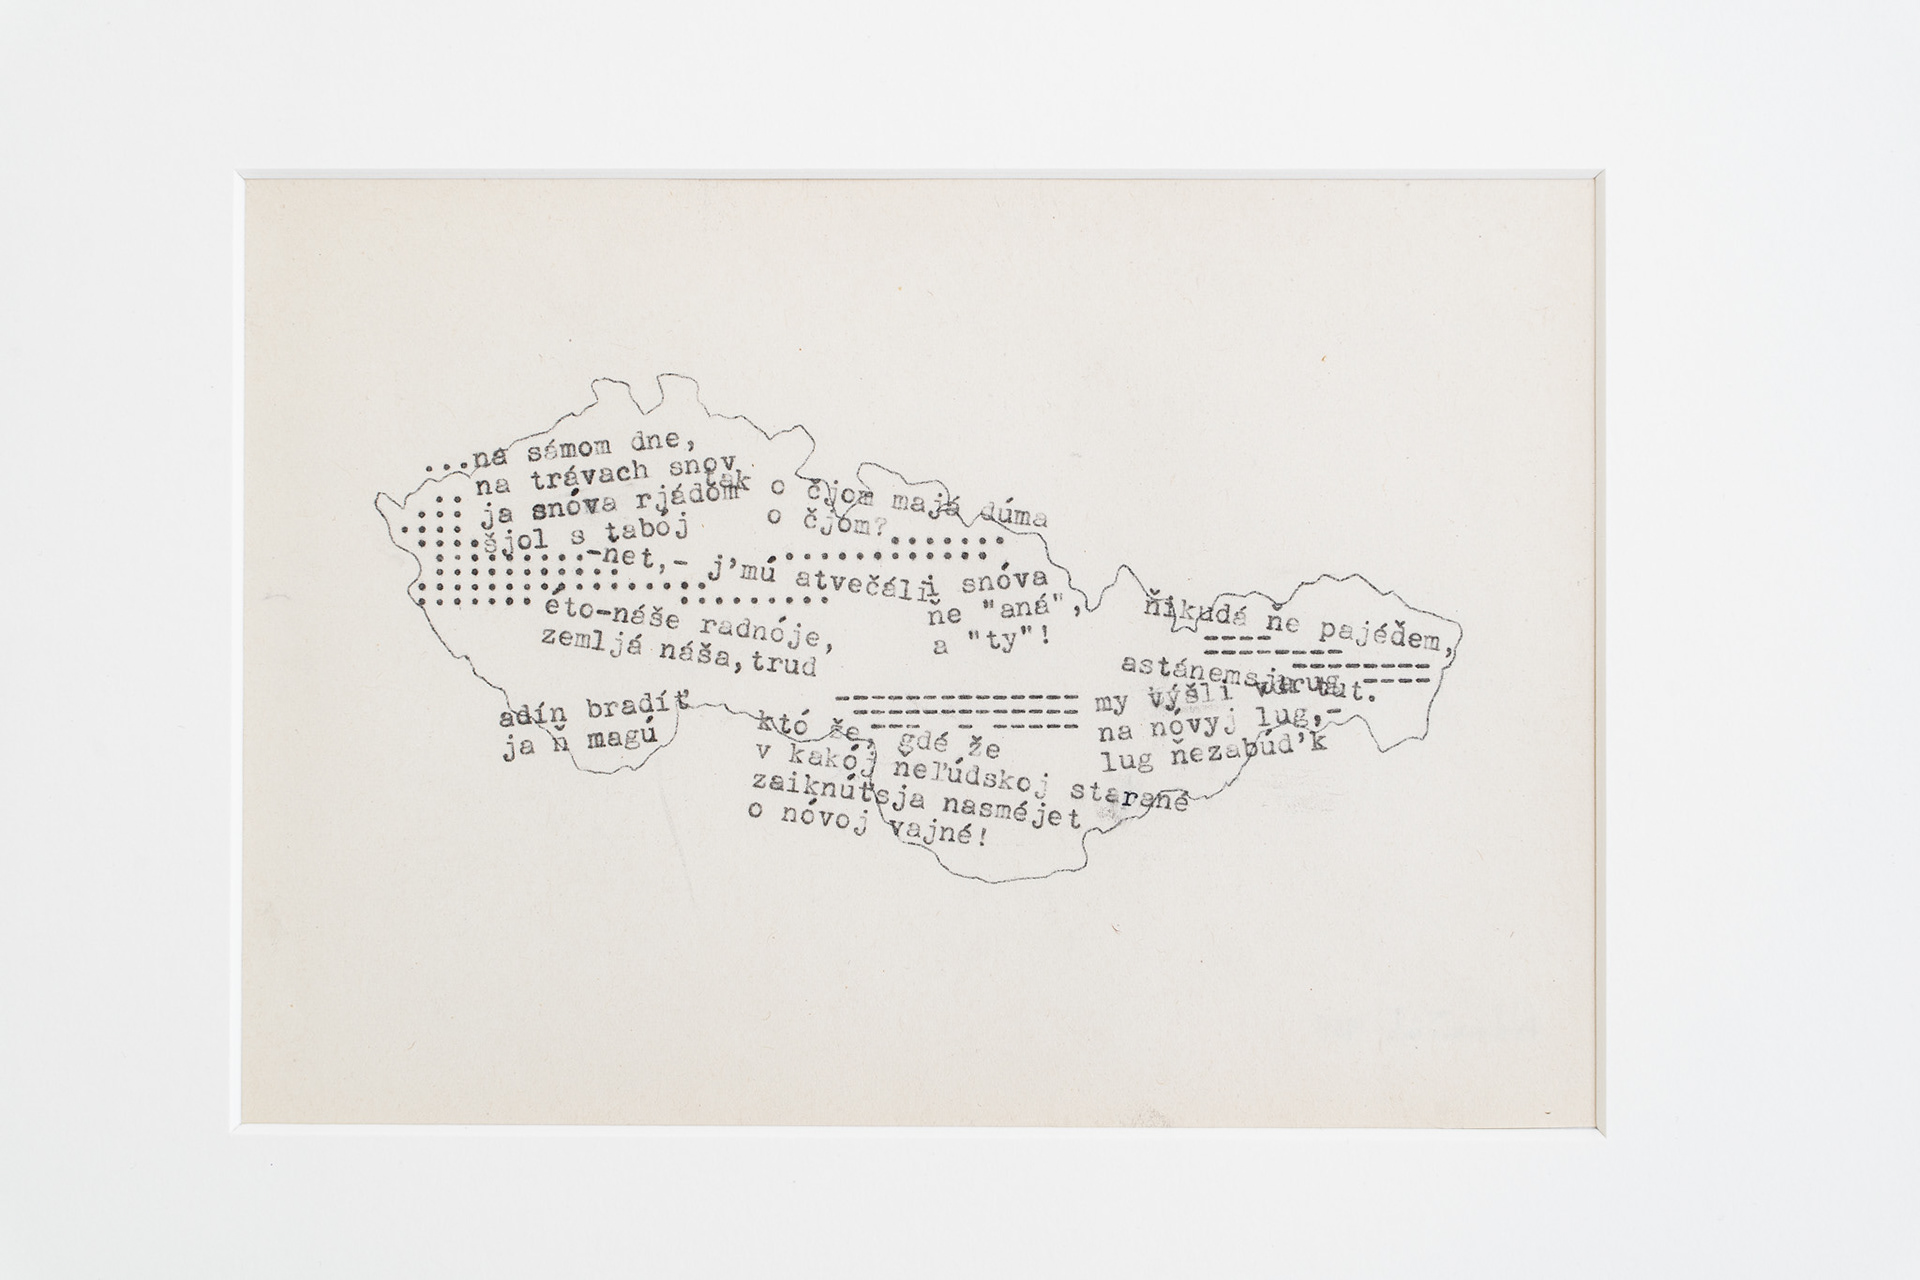 ...na sámom dne,
na trávach snov
tak
ja snóva rjádom
šjol s tabój
o čjom majá dúma
o čjom?
-net,- j'mú atvečáli snóva
ňe "aná",
a "ty"!
éto-náše radnóje,
zemljá náša,trud
adín bradíť
ja ň magú
któ že, gdé že
v kakój ňeľúdskoj starané
zaiknúťsja nasméjet
o nóvoj vajné!
ňikudá ňe pajéďem,
astánemsja tut.
my výšli
na nóvyj lug,-
lug ňezabúd'k